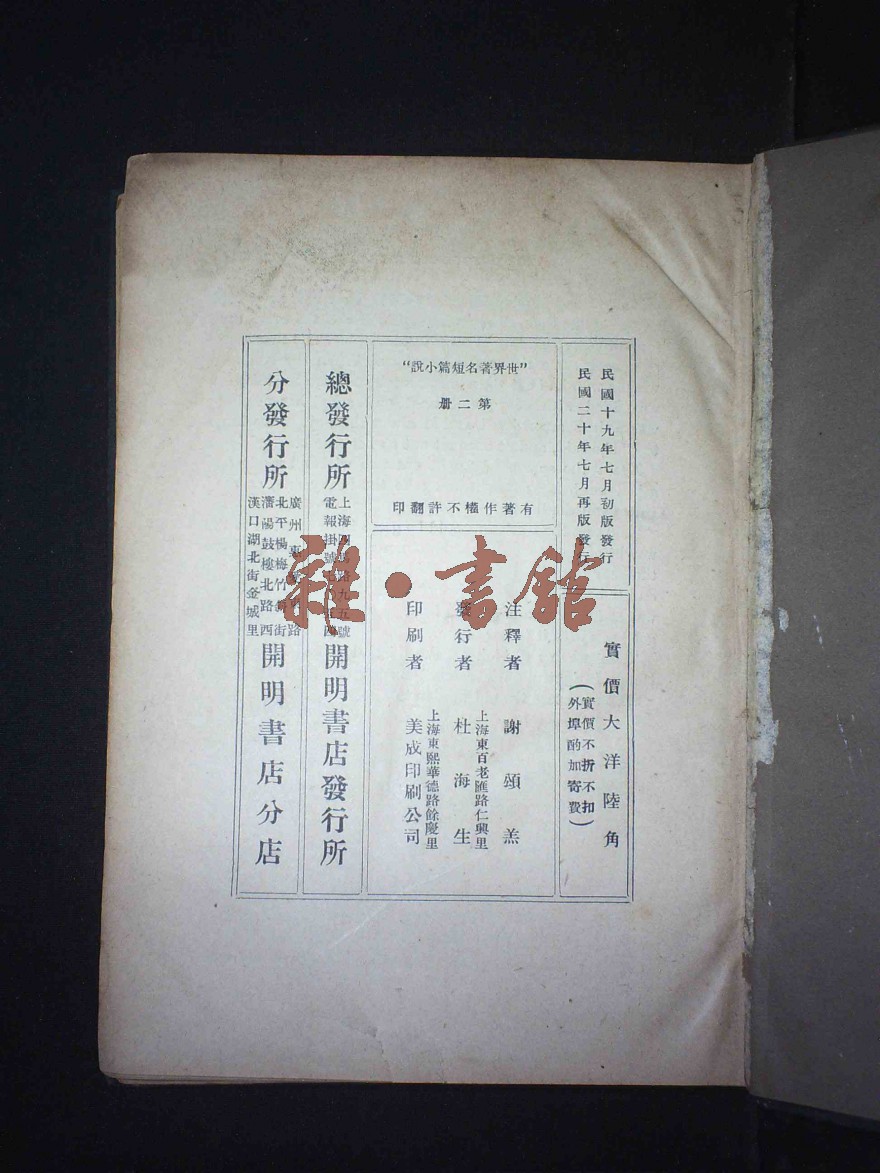 民國十九年七月初版發行
民國二十年七月再版發行
實價大洋陸角
(實價不折不扣
外埠酌加寄費)
“世界著名短篇小說”
第二册
有著作權不許翻印
注釋者 謝頌羔
發行者 杜海生
上海東百老匯路仁興里
印刷者 美成印刷公司
上海東熙華德路餘慶里
總發行所 開明書店發行所
上海四馬路九五號
電報掛號七
分發行所 開明書店分店
廣州惠愛東路
北平楊梅竹斜街
瀋陽鼓樓北路西
漢口湖北街金城里
雜·書館